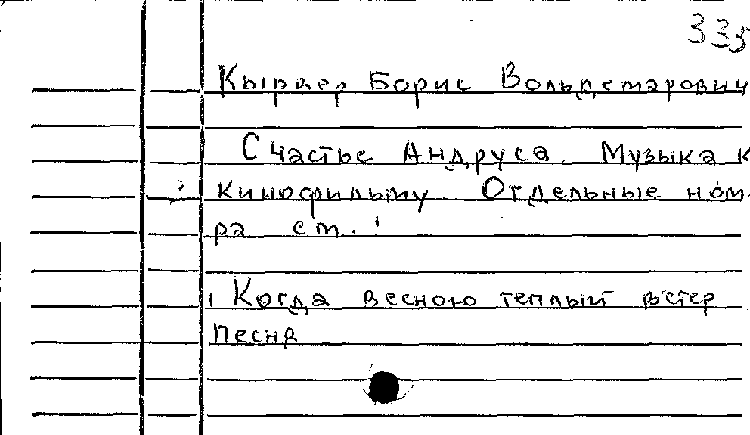 335
Кырвер Борис Вольдемарович
Счастье Андруса. Музыка к
кинофильму Отдельные номе-
ра см.:
1 Когда весною теплый ветер
Песня